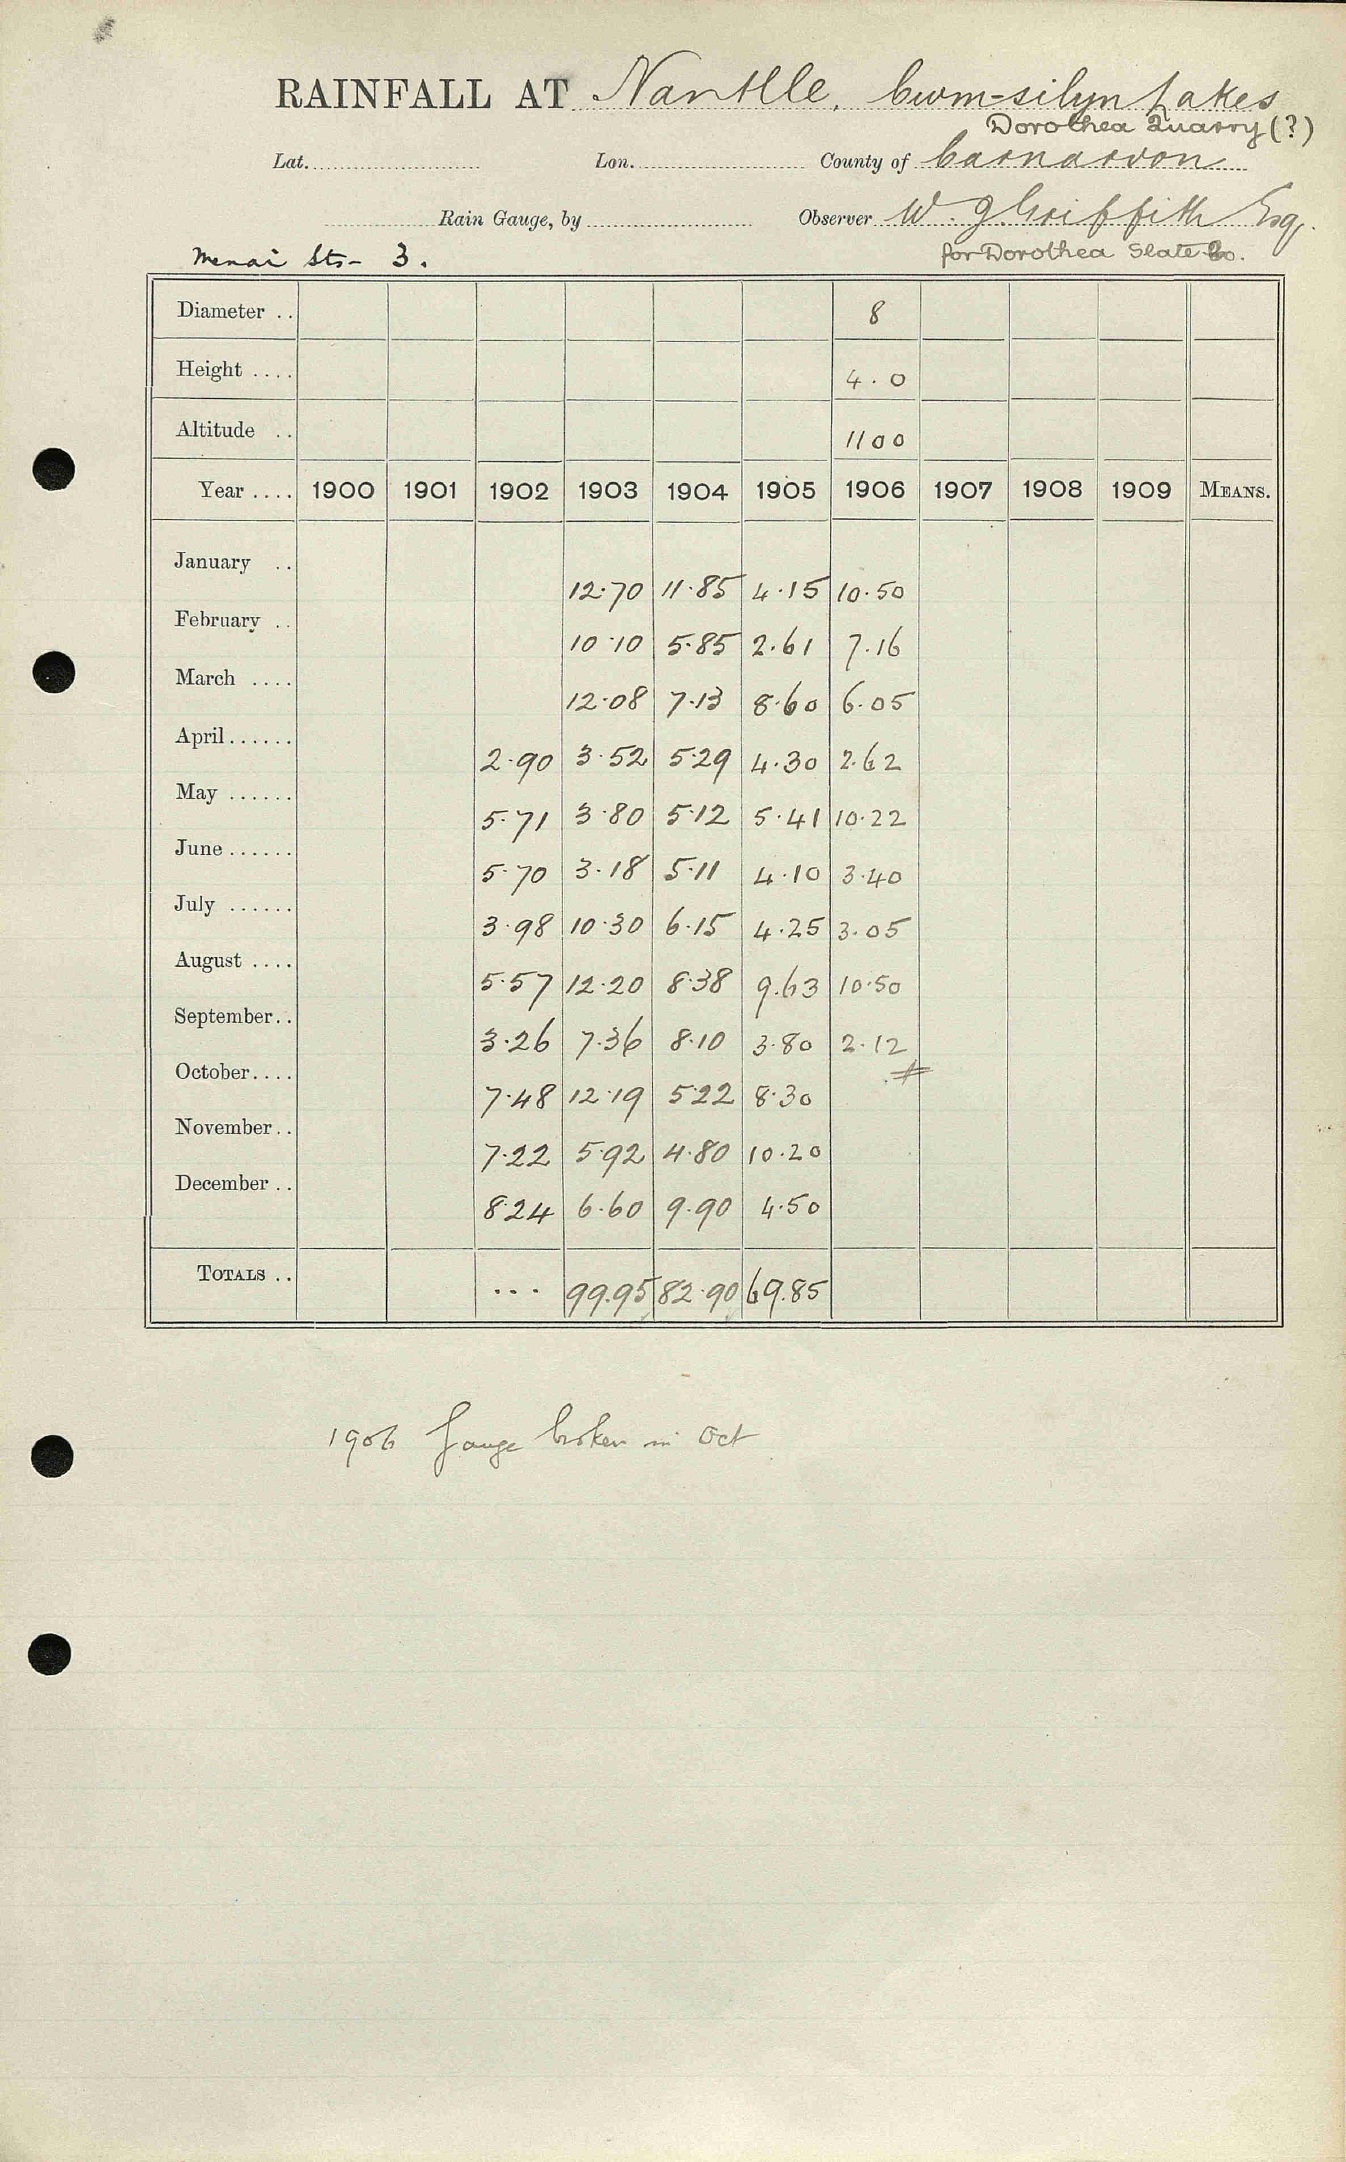 RAINFALL AT Nantlle, Cwm-silyn Lakes
Dorothea Quarry (?)
Lat. Lon. County of Carnarvon
Rain Gauge, by Observer W. J Griffith Esq.
Menai Sts- 3. for Dorothea Slate Co.
Diameter .. 8
Height .... 4.0
Altitude .. 1100
Year .... 1900 1901 1902 1903 1904 1905 1906 1907 1908 1909 MEANS.
January .. 12.70 11.85 4.15 10.50
February .. 10.10 5.85 2.61 7.16
March .... 12.08 7.13 8.60 6.05
April...... 2.90 3.52 5.29 4.30 2.62
May ...... 5.71 3.80 5.12 5.41 10.22
June...... 5.70 3.18 5.11 4.10 3.40
July ...... 3.98 10.30 6.15 4.25 3.05
August .... 5.57 12.20 8.38 9.63 10.50
September.. 3.26 7.36 8.10 3.80 2.12
October.... 7.48 12.19 5.22 8.30 #
November.. 7.22 5.92 4.80 10.20
December .. 8.24 6.60 9.90 4.50
TOTALS .. ... 99.95 82.90 69.85
1906 Gauge broken in Oct